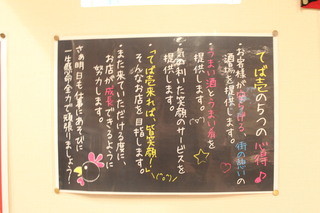 てば壱の5つの心得♪
・お客様が
酒場を提供します。
・うまい酒とうまい
提供します。
・気の利いた笑顔のサービスを
提供します。
・「てば壱来れば、皆笑顔!」
そんなお店を目指します。
・また来ていただける度に、
お店が成長できるように
努力します。
さぁ明日も仕事にあそびに
一生懸命全力で頑張りましょう!